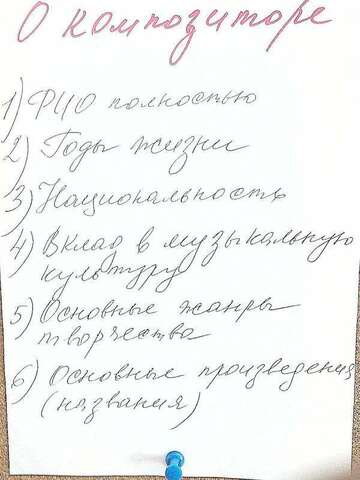 О композиторе
1) ФИО полностью
2) Годы жизни
3) Национальность
4) Вклад в музыкальную
культуру
5) Основные жанры
творчества
6) Основные произведения
(названия)